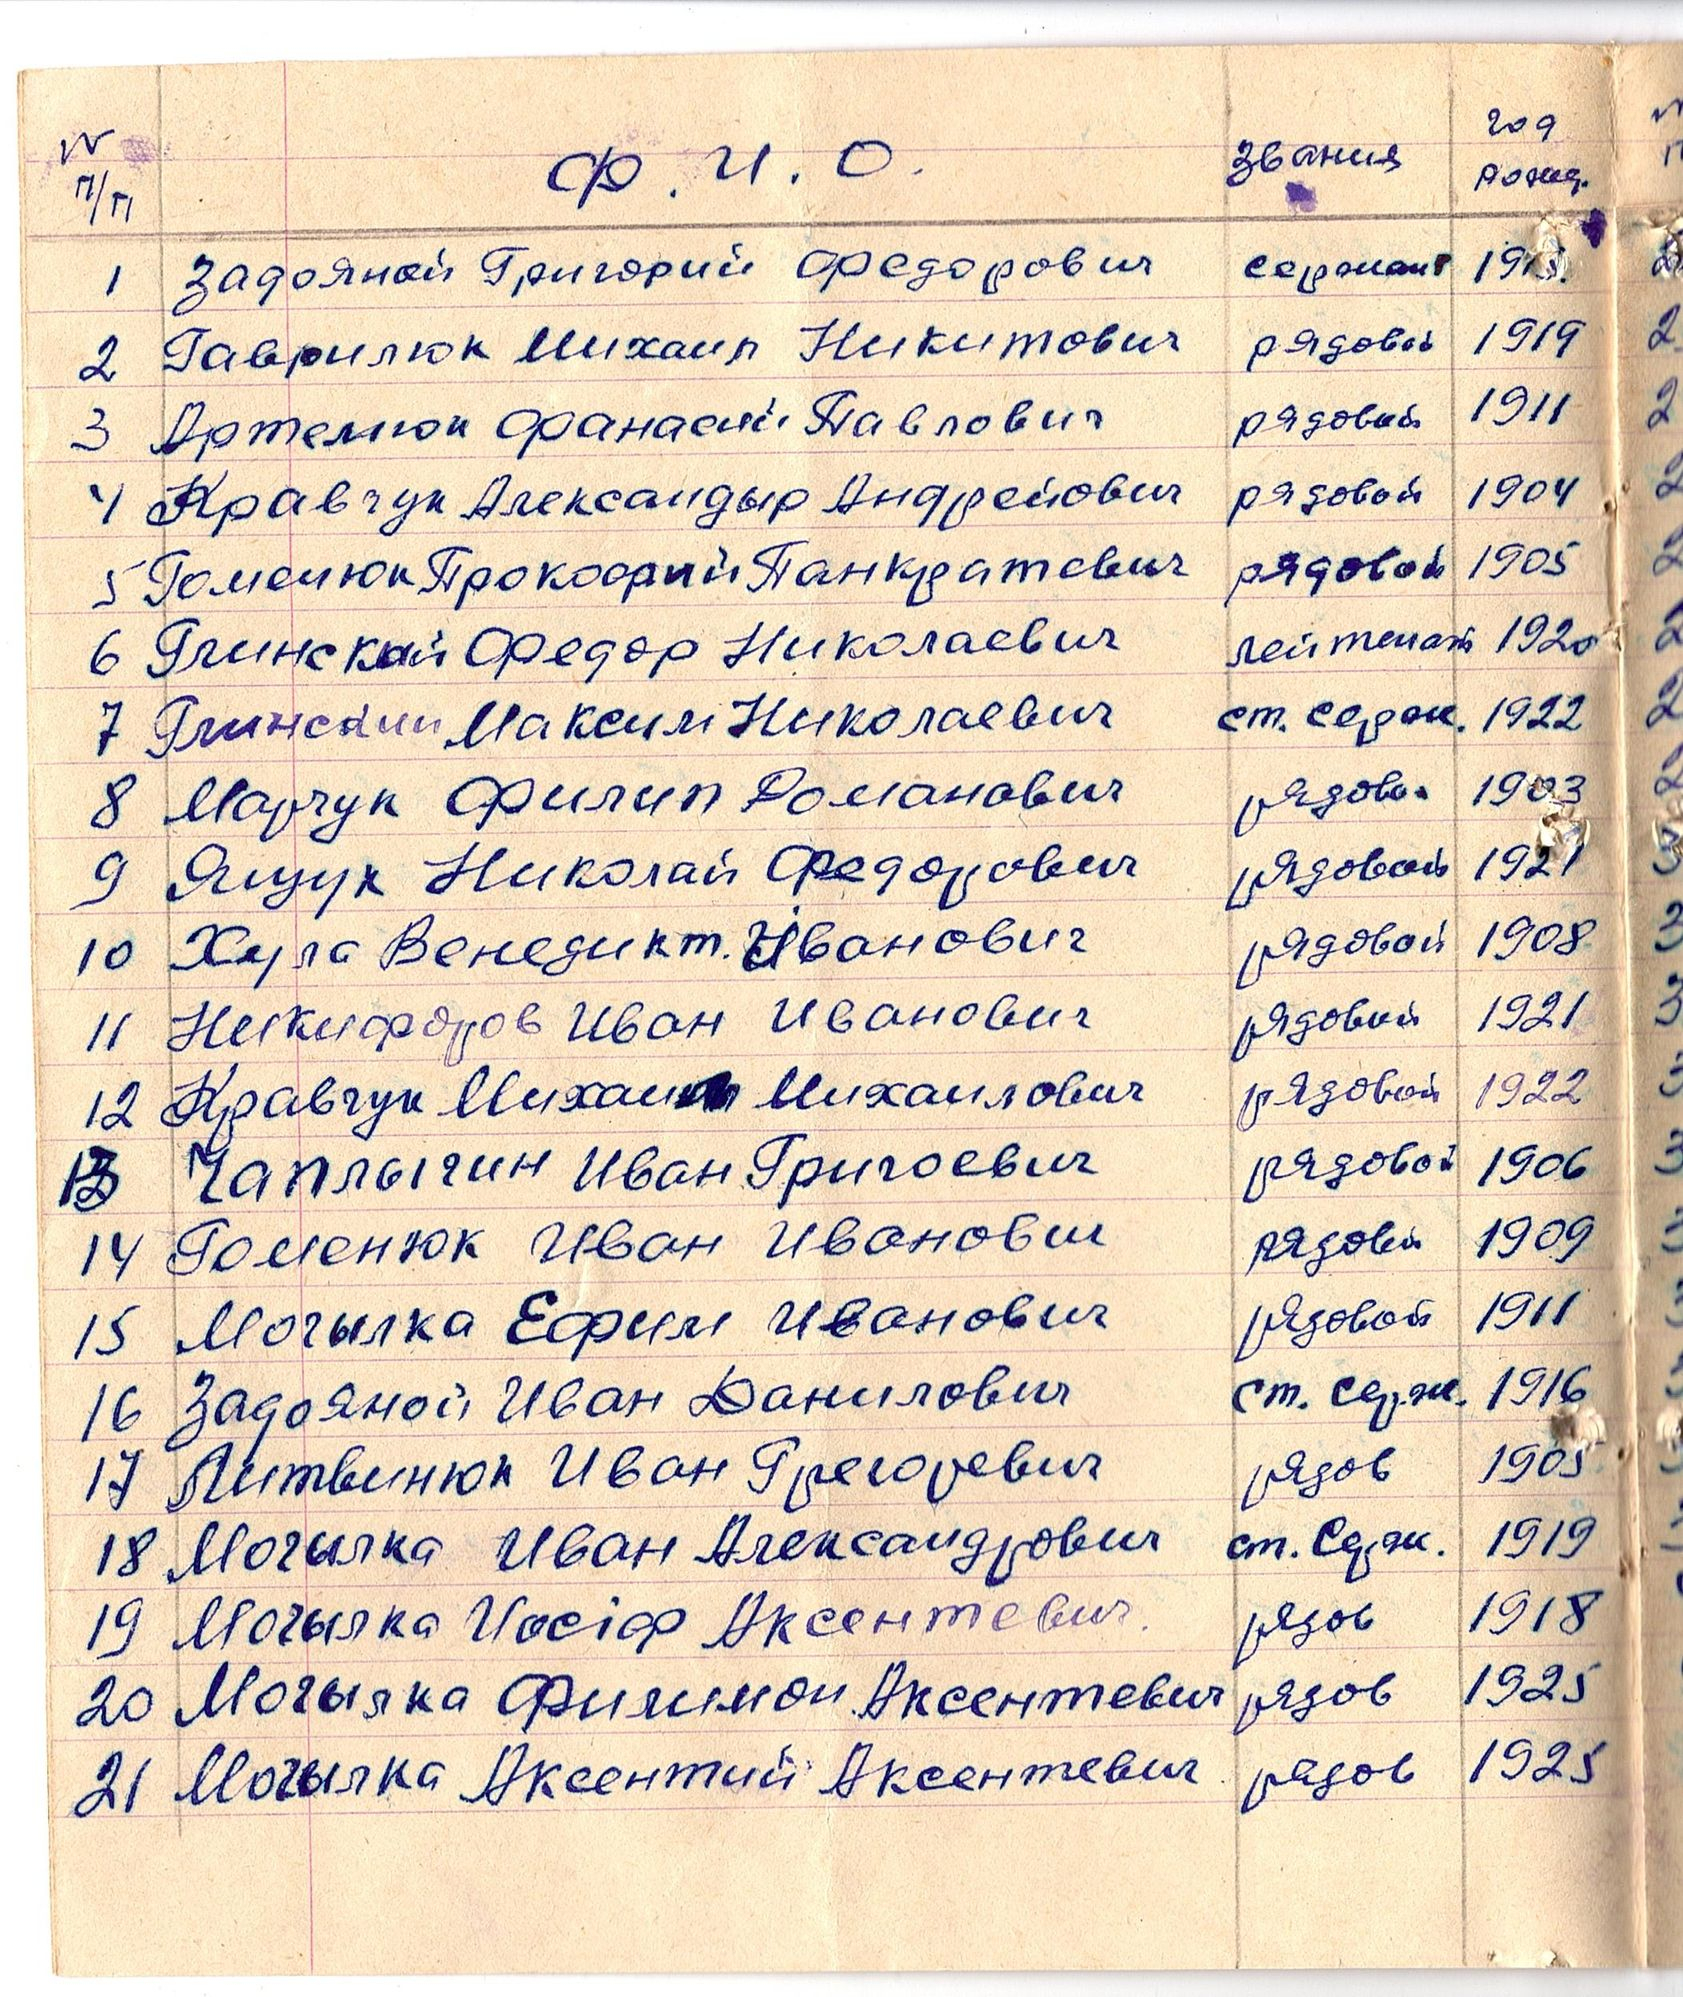 № п/п Ф. И. О. Звания год рожд.
1 Задояной Григорий Федорович сержант
2 Гаврилюк Михаил Никитович рядовой 1919
3 Артемюк Фанасий Павлович рядовой 1911
4 Кравчук Александыр Андрейович рядовой 1904
5 Гоменюк Прокофий Панкратевич рядовой 1905
6 Глинский Федор Николаевич лейтенат 1920
7 Глинский Максим Николаевич ст. серж. 1922
8 Марчук Филип Романович рядовой 1903
9 Ящук Николай Федорович рядовой 1921
10 Хула Венедикт. Иванович рядовой 1908
11 Никифоров Иван Иванович рядовой 1921
12 Кравчук Михаил Михаилович рядовой 1922
13 Чаплыгин Иван Григоевич рядовой 1906
14 Гоменюк Иван Иванович рядовой 1909
15 Могылка Ефим Иванович рядовой 1911
16 Задояной Иван Данилович ст. серж. 1916
17 Литвинюк Иван Грегоревич рядов 1905
18 Могылка Иван Александрович ст. Серж. 1919
19 Могылка Иосіф Аксентевич. рядов 1918
20 Могылка Филимон Аксентевич рядов 1925
21 Могылка Аксентий Аксентевич рядов 1925